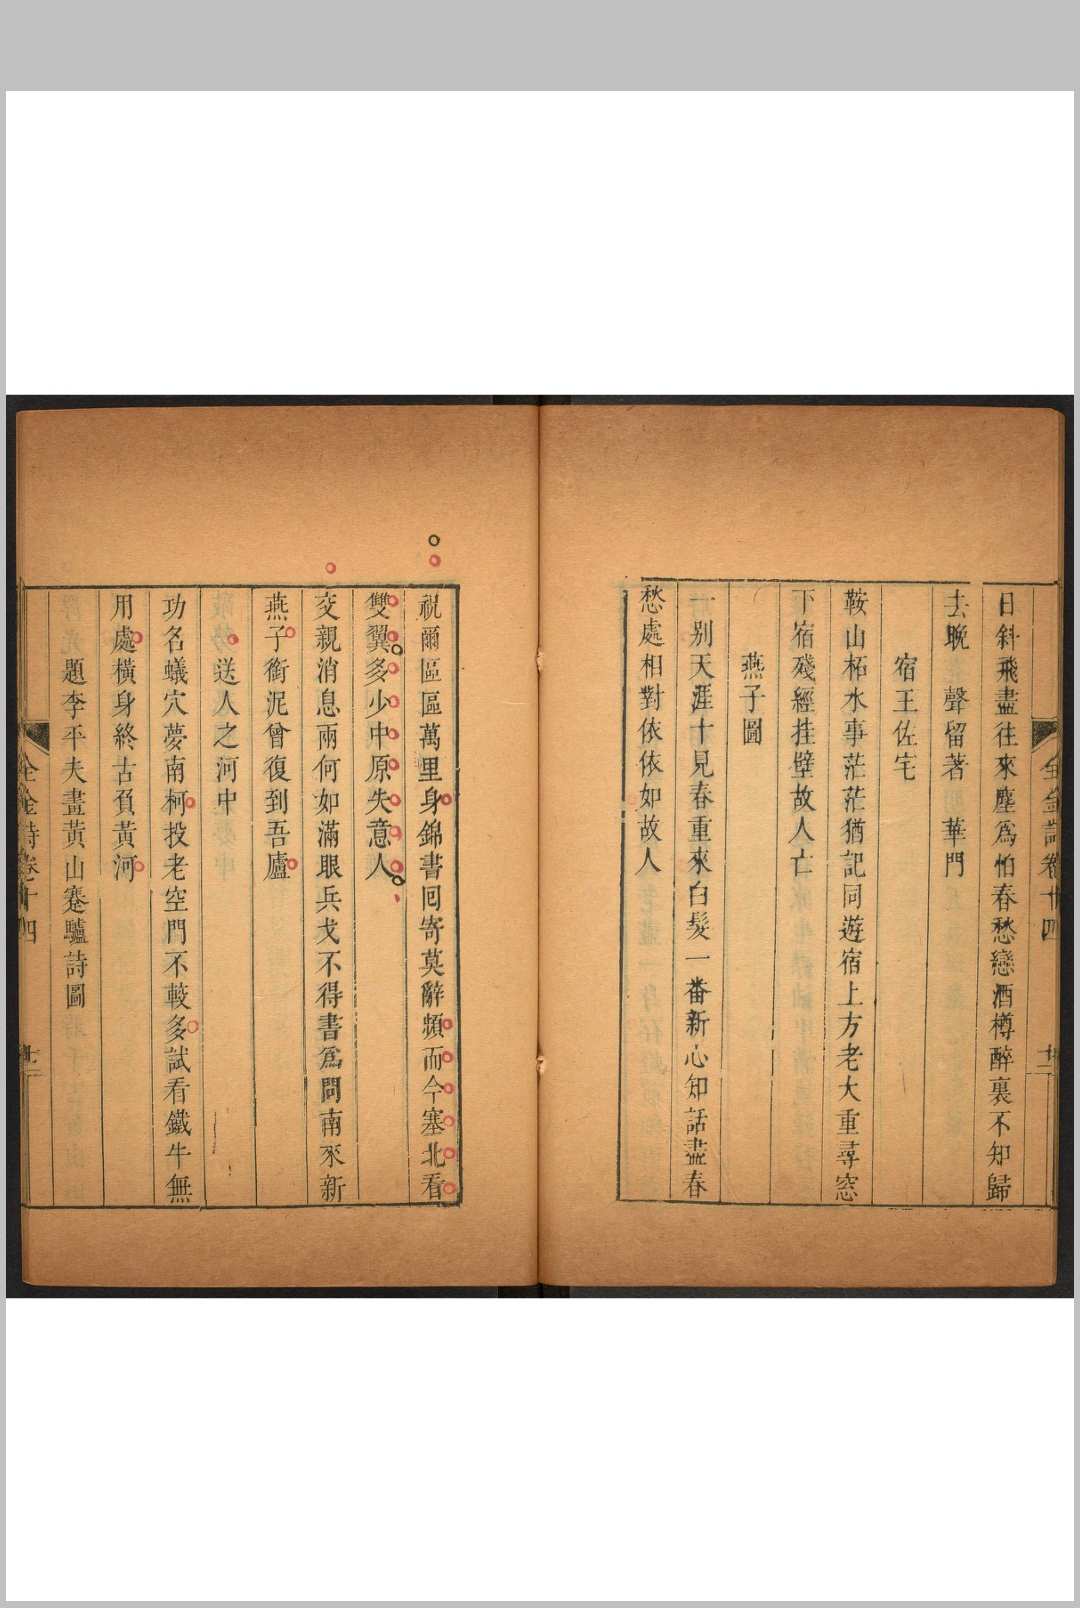 全金詩卷十四
日斜飛盡往來塵爲怕春愁戀酒樽醉裏不知歸
去晚 聲留著 華門
宿王佐宅
鞍山柘水事茫茫猶記同遊宿上方老大重尋窓
下宿殘經挂壁故人亡
燕子圖
一別天涯十見春重來白髮一番新心知話盡春
愁處相對依依如故人
祝爾區區萬里身錦書回寄莫辭頻而今塞北看
雙翼多少中原失意人
交親消息兩何如滿眼兵戈不得書爲問南來新
燕子銜泥曾復到吾廬
送人之河中
功名蟻穴夢南柯投老空門不較多試看鐵牛無
用處橫身終古負黃河
題李平夫畫黃山蹇驢詩圖
全金詩卷十四